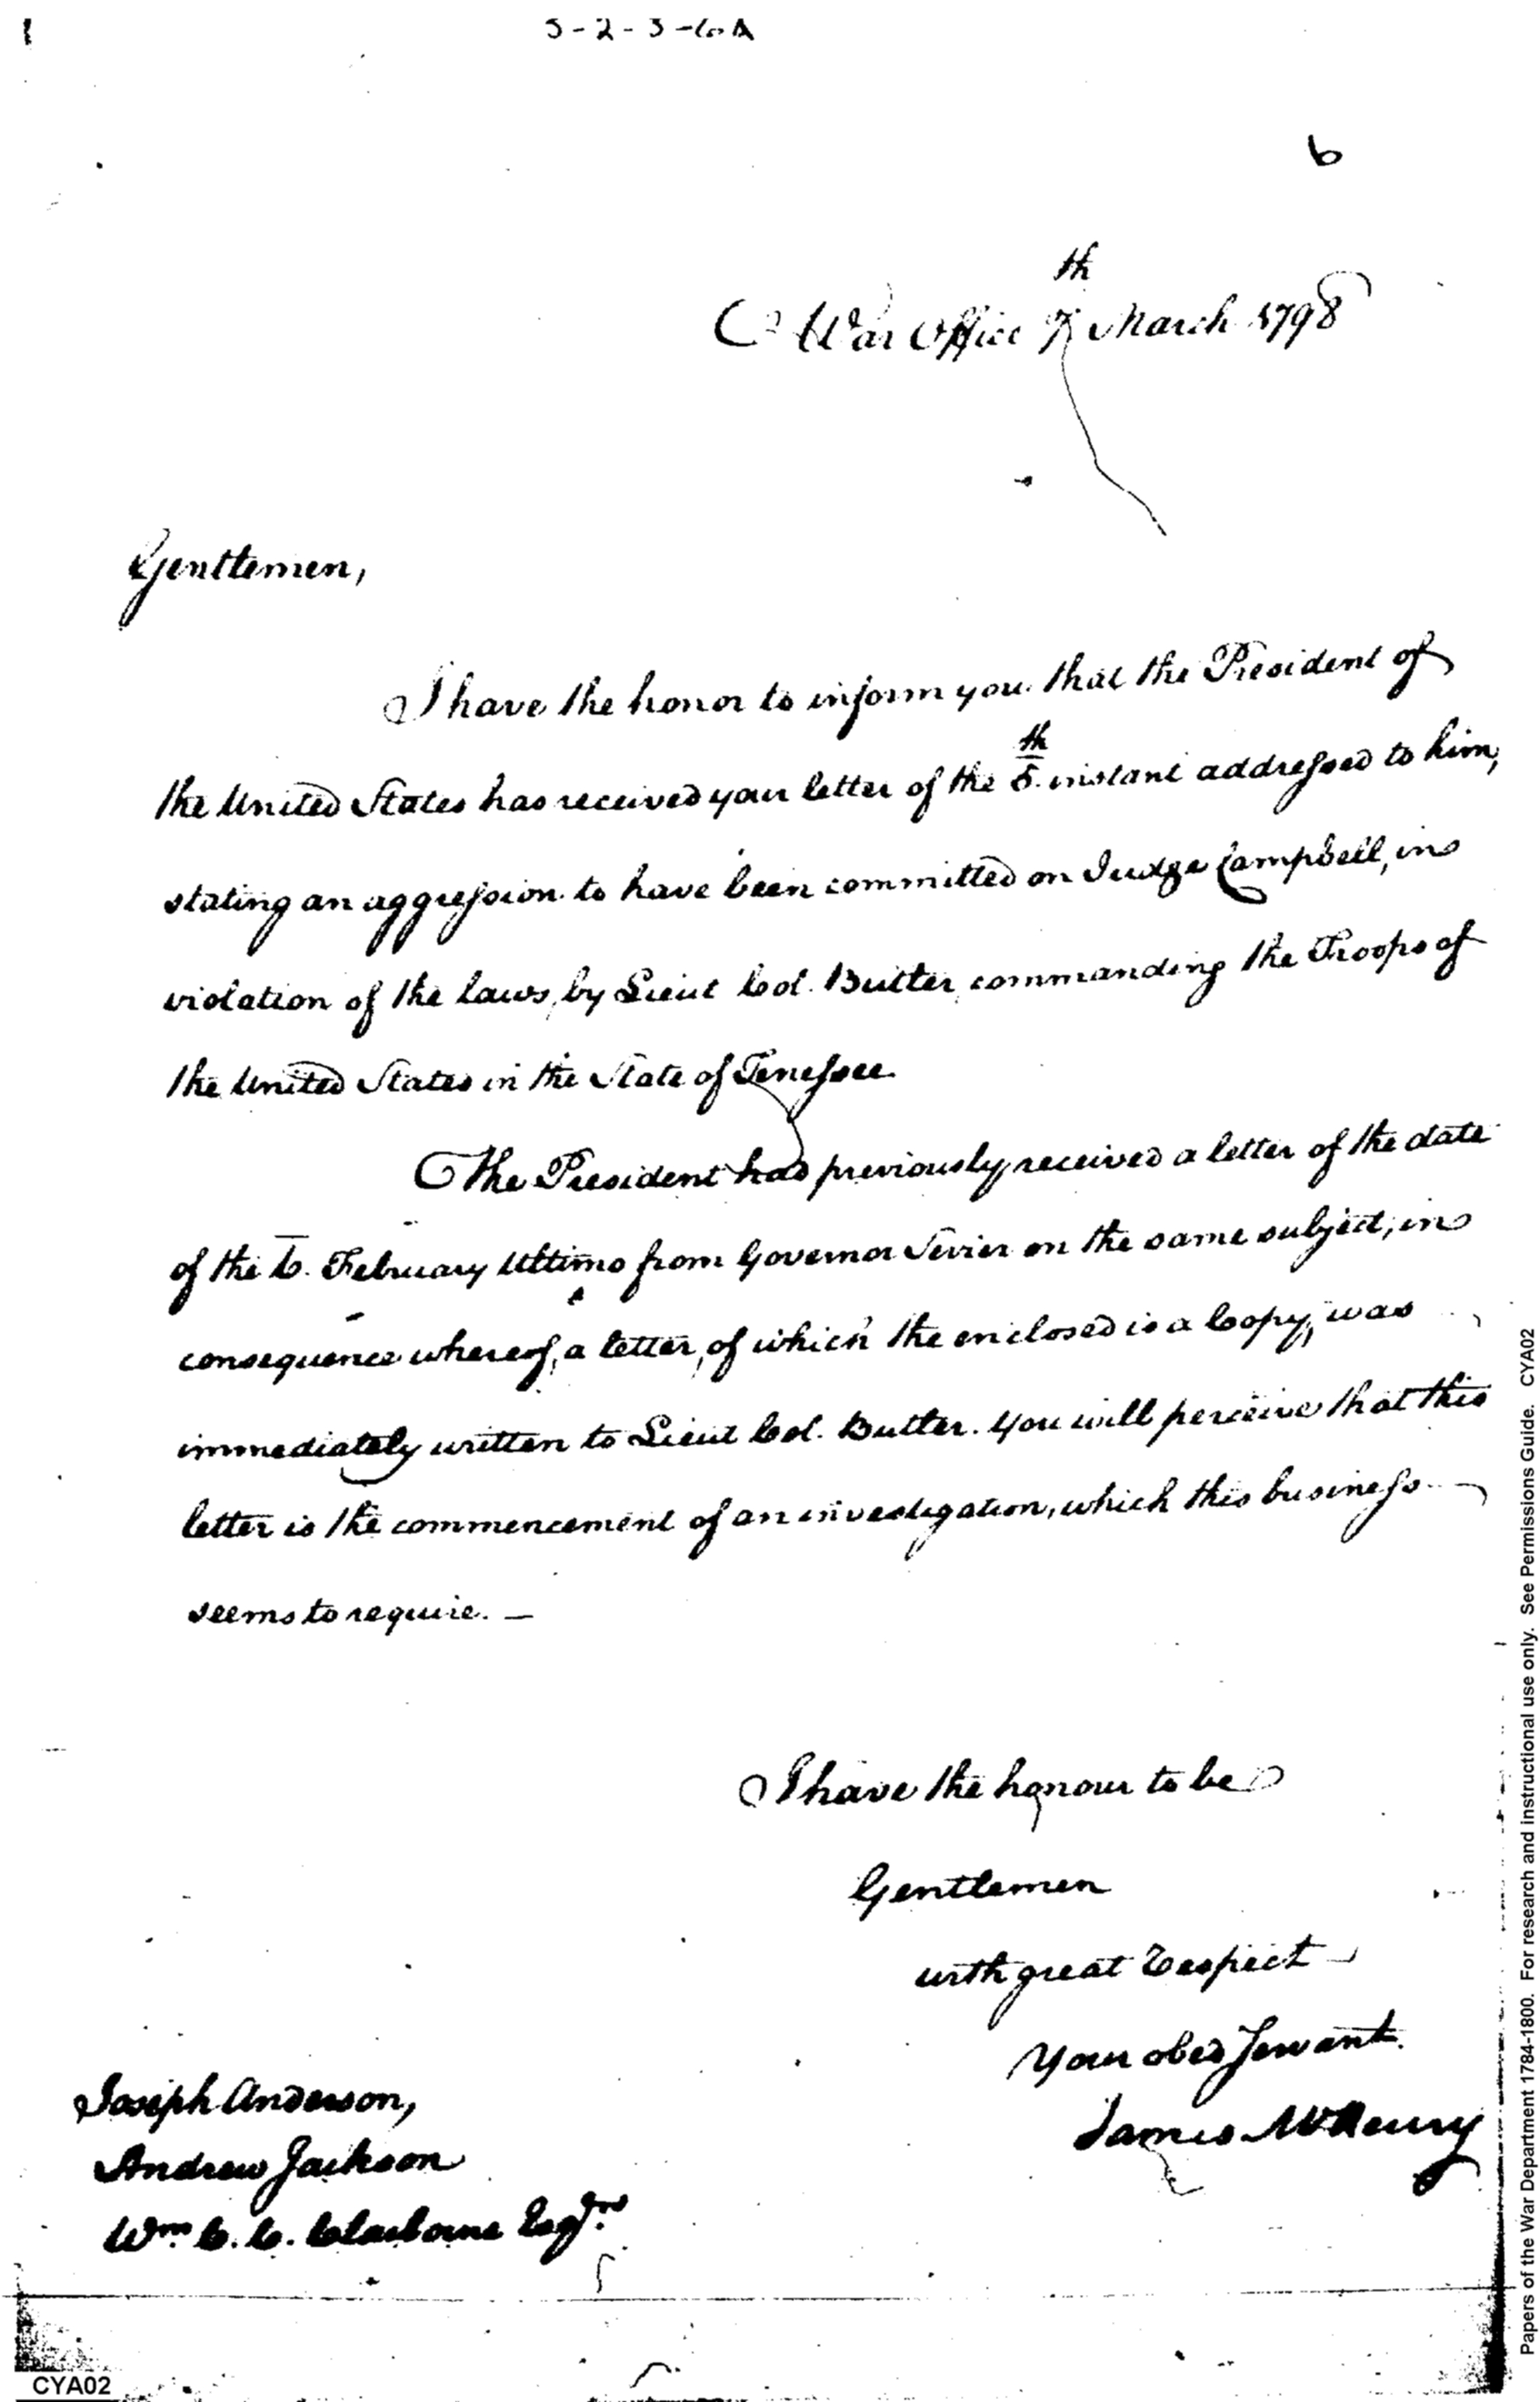 1
3-2-3-6A
6
War Office 7th March 1798
Gentlemen,
I have the honor to inform you that the President of
the United States has received your letter of the 5th instant addressed to him,
stating an aggression to have been committed on Judge Campbell, in
violation of the laws, by Lieut Col. Butler commanding the Troops of
the United States in the State of Tenessee.
The President had previously received a letter of the date
of the 6. February Ultimo from Governor Sevier on the same subject, in
consequence whereof, a letter, of which the enclosed is a Copy, was
immediately written to Lieut Col. Butler. You will perceive that this
letter is the commencement of an investigation, which this business
seems to require. —
I have the honour to be
Gentlemen
with great Respect
Your obed Servant.
James McHenry
Joseph Anderson,
Andrew Jackson
Wm. C. C. Claiborne Esqrs.
CYA02
Papers of the War Department 1784-1800. For research and instructional use only. See Permissions Guide. CYA02